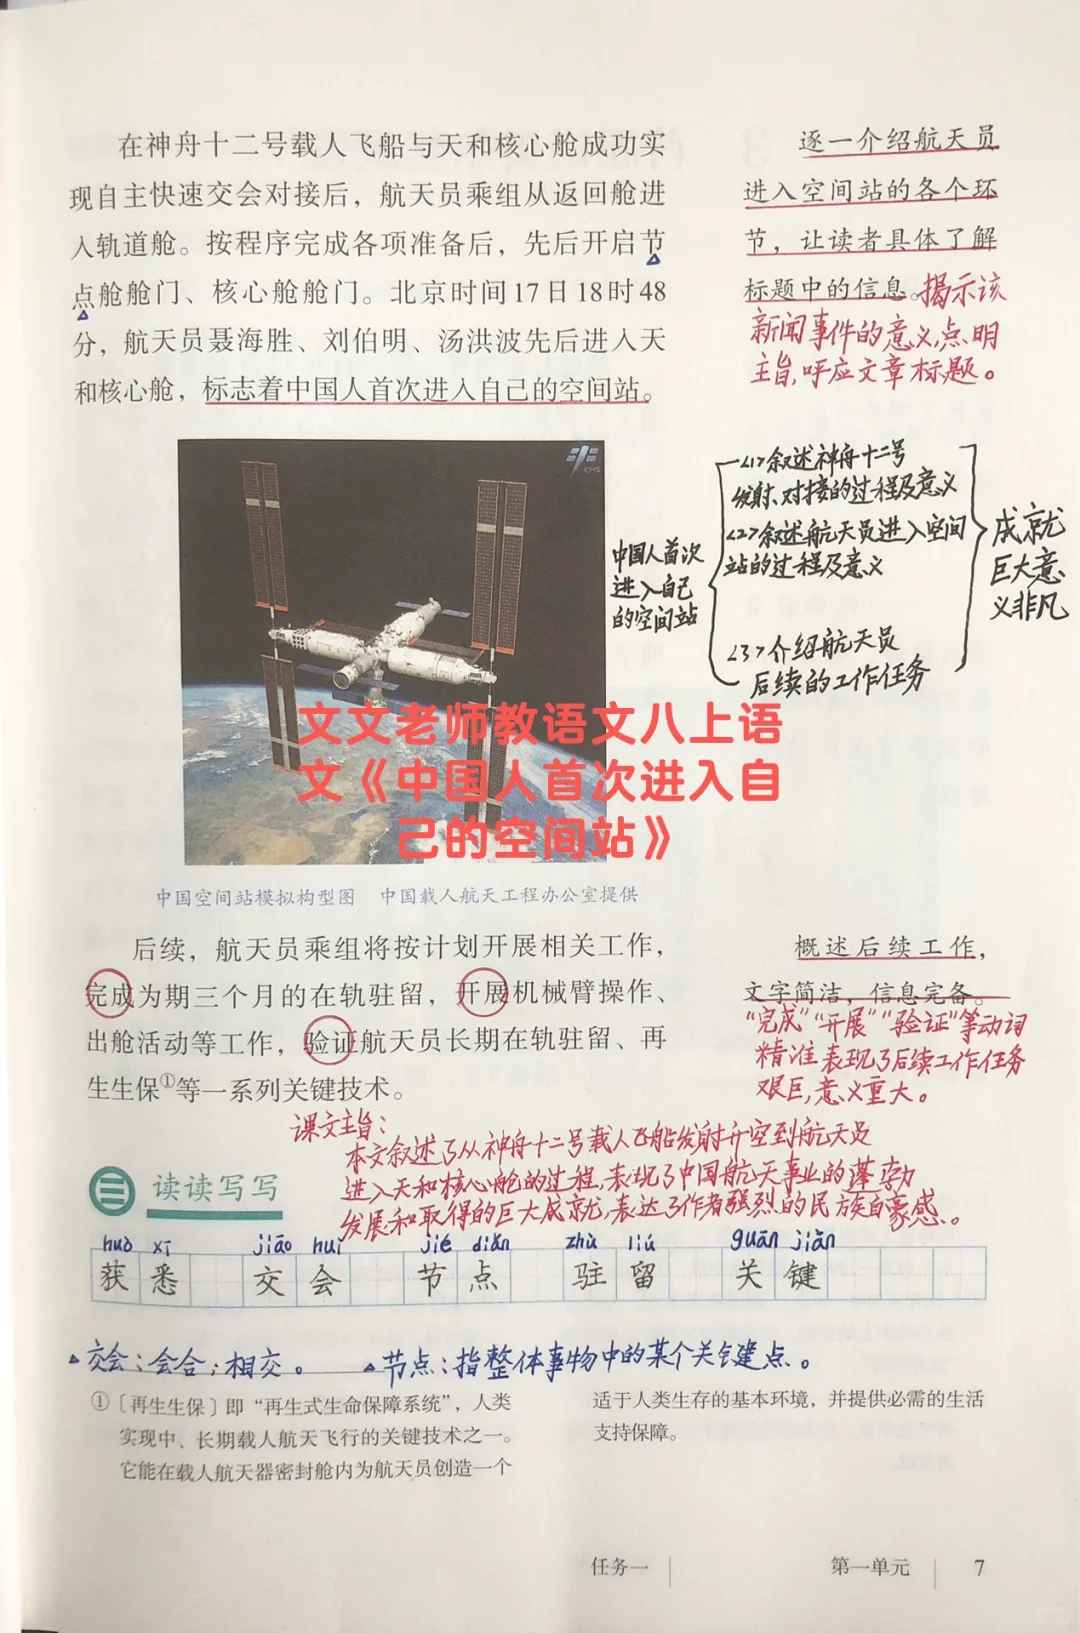 在神舟十二号载人飞船与天和核心舱成功实
现自主快速交会对接后，航天员乘组从返回舱进
入轨道舱。按程序完成各项准备后，先后开启节
点舱舱门、核心舱舱门。北京时间17日18时48
分，航天员聂海胜、刘伯明、汤洪波先后进入天
和核心舱，标志着中国人首次进入自己的空间站。
逐一介绍航天员
进入空间站的各个环
节，让读者具体了解
标题中的信息。揭示该
新闻事件的意义，点明
主旨，呼应文章标题。
CMS
中国人首次
进入自己
的空间站
<1>叙述神舟十二号
发射、对接的过程及意义
<2>叙述航天员进入空间
站的过程及意义
<3>介绍航天员
后续的工作任务
成就
巨大意
义非凡
文文老师教语文八上语
文《中国人首次进入自
己的空间站》
中国空间站模拟构型图 中国载人航天工程办公室提供
后续，航天员乘组将按计划开展相关工作，
完成为期三个月的在轨驻留，开展机械臂操作、
出舱活动等工作，验证航天员长期在轨驻留、再
生生保①等一系列关键技术。
概述后续工作，
文字简洁，信息完备。
“完成”“开展”“验证”等动词
精准表现了后续工作任务
艰巨，意义重大。
课文主旨：
本文叙述了从神舟十二号载人飞船发射升空到航天员
进入天和核心舱的过程，表现了中国航天事业的蓬勃
发展和取得的巨大成就，表达了作者强烈的民族自豪感。
读读写写
huò xī jiāo huì jié diǎn zhù liú guān jiàn
获悉 交会 节点 驻留 关键
交会：会合；相交。 节点：指整体事物中的某个关键点。
①〔再生生保〕即“再生式生命保障系统”，人类
实现中、长期载人航天飞行的关键技术之一。
它能在载人航天器密封舱内为航天员创造一个
适于人类生存的基本环境，并提供必需的生活
支持保障。
任务一 第一单元 7